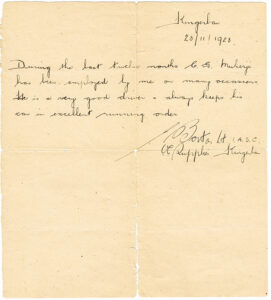 Kingerba
20/11/1920
During the last twelve months C. S.
has been employed by me on many occasions
He is a very good driver & always keeps his
car in excellent running order
Lt I.A.S.C.
Supplies Kingerba